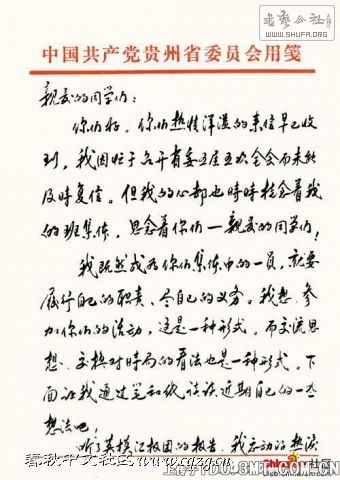 书艺公社
WWW.SHUFA.ORG
中国共产党贵州省委员会用笺
親爱的同学们：
你们好。你们热情洋溢的来信早已收
到，我因忙于召开省委五届五次全会而未能
及时复信。但我的心却也时时挂念着我
的班集体，思念着你们—親爱的同学们！
我既然成为你们集体中的一員，就要
履行自己的职责、尽自己的义务。我想，参
加你们的活动，这是一种形式。而交流思
想、交换对时局的看法也是一种形式。下
面让我通过笔和纸谈谈近期自己的一些
想法吧！
听了英模汇报团的报告，我 动的热泪
春秋中文社区www.cqzg.cn